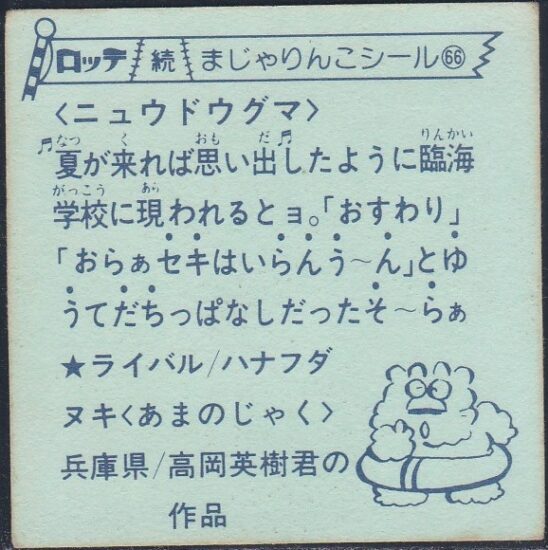 ロッテ 続 まじゃりんこシール66
〈ニュウドウグマ〉
♬夏が来れば思い出♬したように臨海
学校に現われるとョ。「おすわり」
「おらぁセキはいらんう～ん」とゆ
うてだちっぱなしだったそ～らぁ
★ライバル/ハナフダ
ヌキ〈あまのじゃく〉
兵庫県/高岡英樹君の
作品